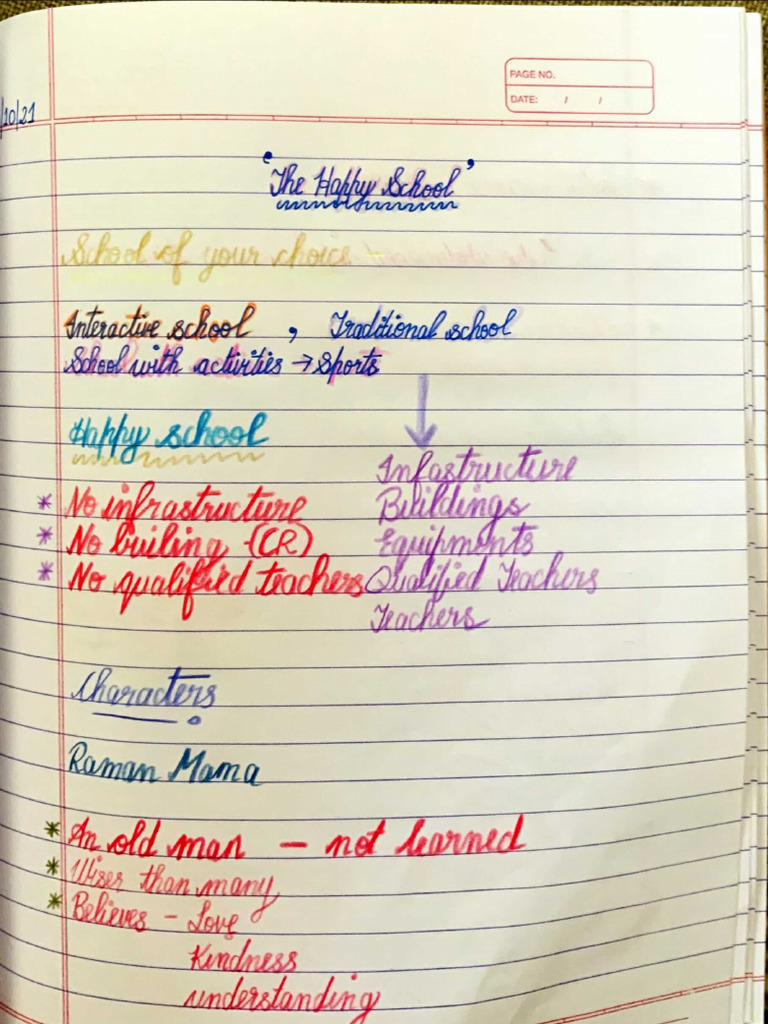 PAGE NO.
DATE: / /
/10/21
'The Happy School'
School of your choice
Interactive school , Traditional school
School with activities → Sports
Happy school
Infastructure
* No infrastructure Buildings
* No builing -(CR) Equipments
* No qualified teachers Qualified Teachers
Teachers
Characters
Raman Mama
* An old man — not learned
* Wiser than many
* Believes - Love
Kindness
understanding